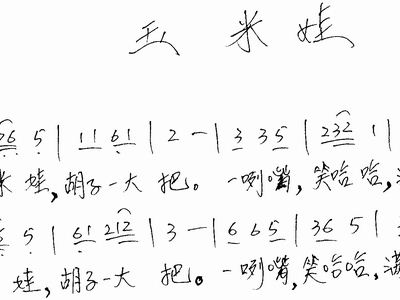 玉米娃
6 5 | 11 61 | 2 - | 3 35 | 232 1 |
米 娃,胡子一大 把。 一咧嘴,笑哈哈,
5 | 61 212 | 3 - | 6 65 | 36 5 |
娃,胡子一大 把。 一咧嘴,笑哈哈,满